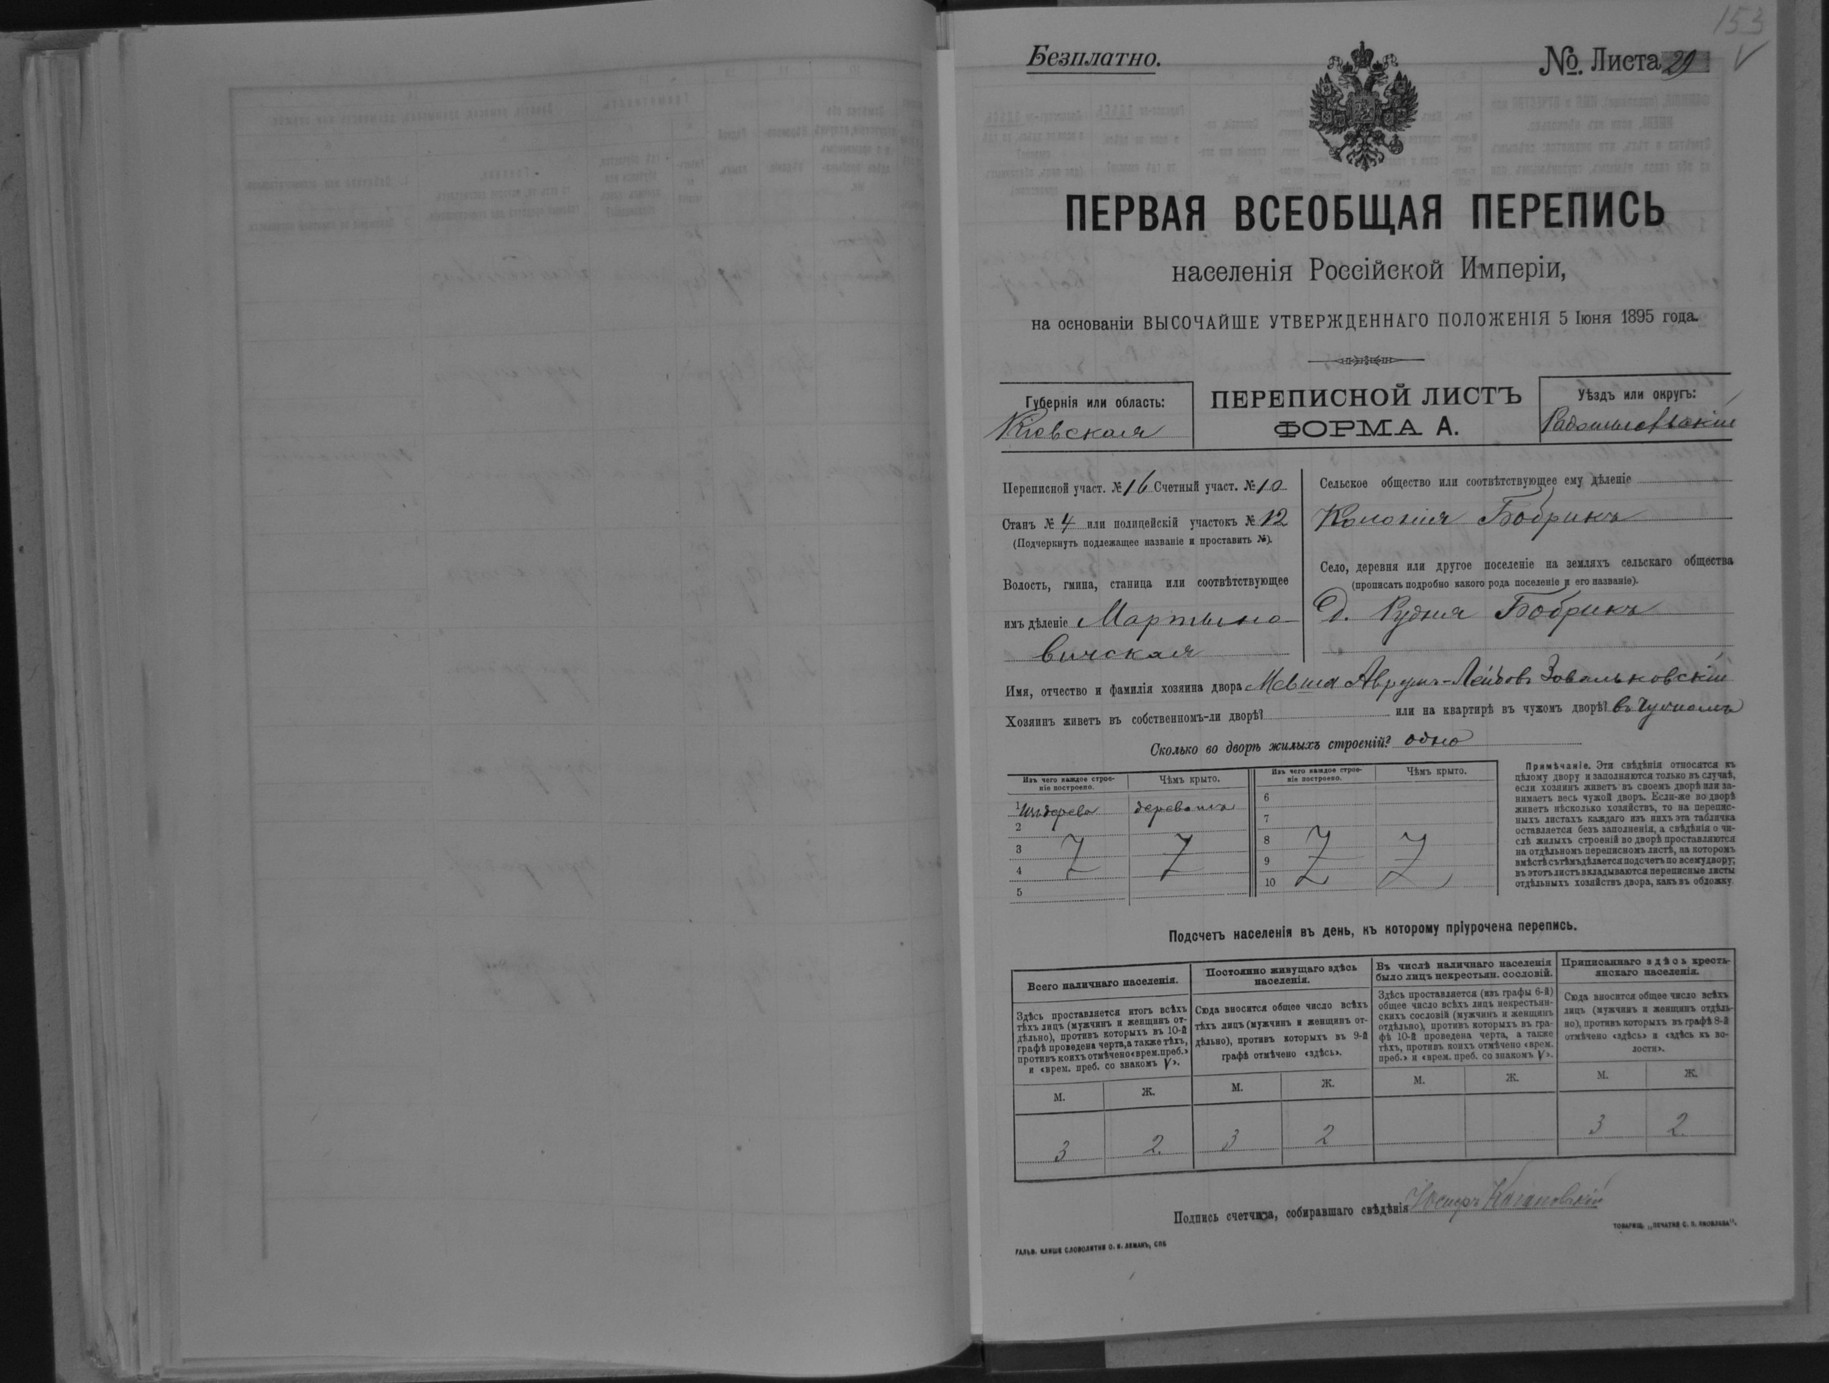 153
Безплатно.
№ Листа 29
ПЕРВАЯ ВСЕОБЩАЯ ПЕРЕПИСЬ
населенія Россійской Имперіи,
на основаніи ВЫСОЧАЙШЕ УТВЕРЖДЕННАГО ПОЛОЖЕНІЯ 5 Іюня 1895 года.
Губернія или область:
Кіевская
ПЕРЕПИСНОЙ ЛИСТЪ
ФОРМА А.
Уѣздъ или округъ:
Радомысльскій
Переписной участ. № 16 Счетный участ. № 10
Станъ № 4 или полицейскій участокъ № 12
(Подчеркнуть подлежащее названіе и проставить №).
Волость, гмина, станица или соотвѣтствующее
имъ дѣленіе Мартыно-
вичская
Сельское общество или соотвѣтствующее ему дѣленіе
Колонія Бобрикъ
Село, деревня или другое поселеніе на земляхъ сельскаго общества
(прописать подробно какого рода поселеніе и его названіе).
д. Рудня Бобрикъ
Имя, отчество и фамилія хозяина двора Мевша Аврумъ-Лейбовъ Завальковскій
Хозяинъ живетъ въ собственномъ-ли дворѣ? или на квартирѣ въ чужомъ дворѣ? въ чужомъ
Сколько во дворѣ жилыхъ строеній? одно
Изъ чего каждое строе-
ніе построено.
Чѣмъ крыто.
Изъ чего каждое строе-
ніе построено.
Чѣмъ крыто.
1 Изъ дерева
2
3
4
5
6
7
8
9
10
Примѣчаніе. Эти свѣдѣнія относятся къ
цѣлому двору и заполняются только въ случаѣ,
если хозяинъ живетъ въ своемъ дворѣ или за-
нимаетъ весь чужой дворъ. Если-же во дворѣ
живетъ нѣсколько хозяйствъ, то на перепис-
ныхъ листахъ каждаго изъ нихъ эта табличка
оставляется безъ заполненія, а свѣдѣнія о чи-
слѣ жилыхъ строеній во дворѣ проставляются
на отдѣльномъ переписномъ листѣ, на которомъ
вмѣстѣ съ тѣмъ дѣлается подсчетъ по всему двору;
въ этотъ листъ вкладываются переписные листы
отдѣльныхъ хозяйствъ двора, какъ въ обложку.
Подсчетъ населенія въ день, къ которому пріурочена перепись.
Всего наличнаго населенія.
Здѣсь проставляется итогъ всѣхъ
тѣхъ лицъ (мужчинъ и женщинъ от-
дѣльно), противъ которыхъ въ 10-й
графѣ проведена черта, а также тѣхъ,
противъ коихъ отмѣчено «врем. преб.»
и «врем. преб. со знакомъ V».
Постоянно живущаго здѣсь
населенія.
Сюда вносится общее число всѣхъ
тѣхъ лицъ (мужчинъ и женщинъ от-
дѣльно), противъ которыхъ въ 9-й
графѣ отмѣчено «здѣсь».
Въ числѣ наличнаго населенія
было лицъ некрестьян. сословій.
Здѣсь проставляется (изъ графы 6-й)
общее число всѣхъ лицъ некрестьян-
скихъ сословій (мужчинъ и женщинъ
отдѣльно), противъ которыхъ въ гра-
фѣ 10-й проведена черта, а также
тѣхъ, противъ коихъ отмѣчено «врем.
преб.» и «врем. преб. со знакомъ V».
Приписаннаго здѣсь кресть-
янскаго населенія.
Сюда вносится общее число всѣхъ
лицъ (мужчинъ и женщинъ отдѣль-
но), противъ которыхъ въ графѣ 8-й
отмѣчено «здѣсь» и «здѣсь къ во-
лости».
М. Ж. М. Ж. М. Ж. М. Ж.
3 2. 3 2 3 2
Подпись счетчика, собиравшаго свѣдѣнія Іосифъ
ГАЛЬВ. КЛИШЕ СЛОВОЛИТНИ О. И. ЛЕМАНЪ, СПБ
ТОВАРИЩ. „ПЕЧАТНЯ С. П. ЯКОВЛЕВА".